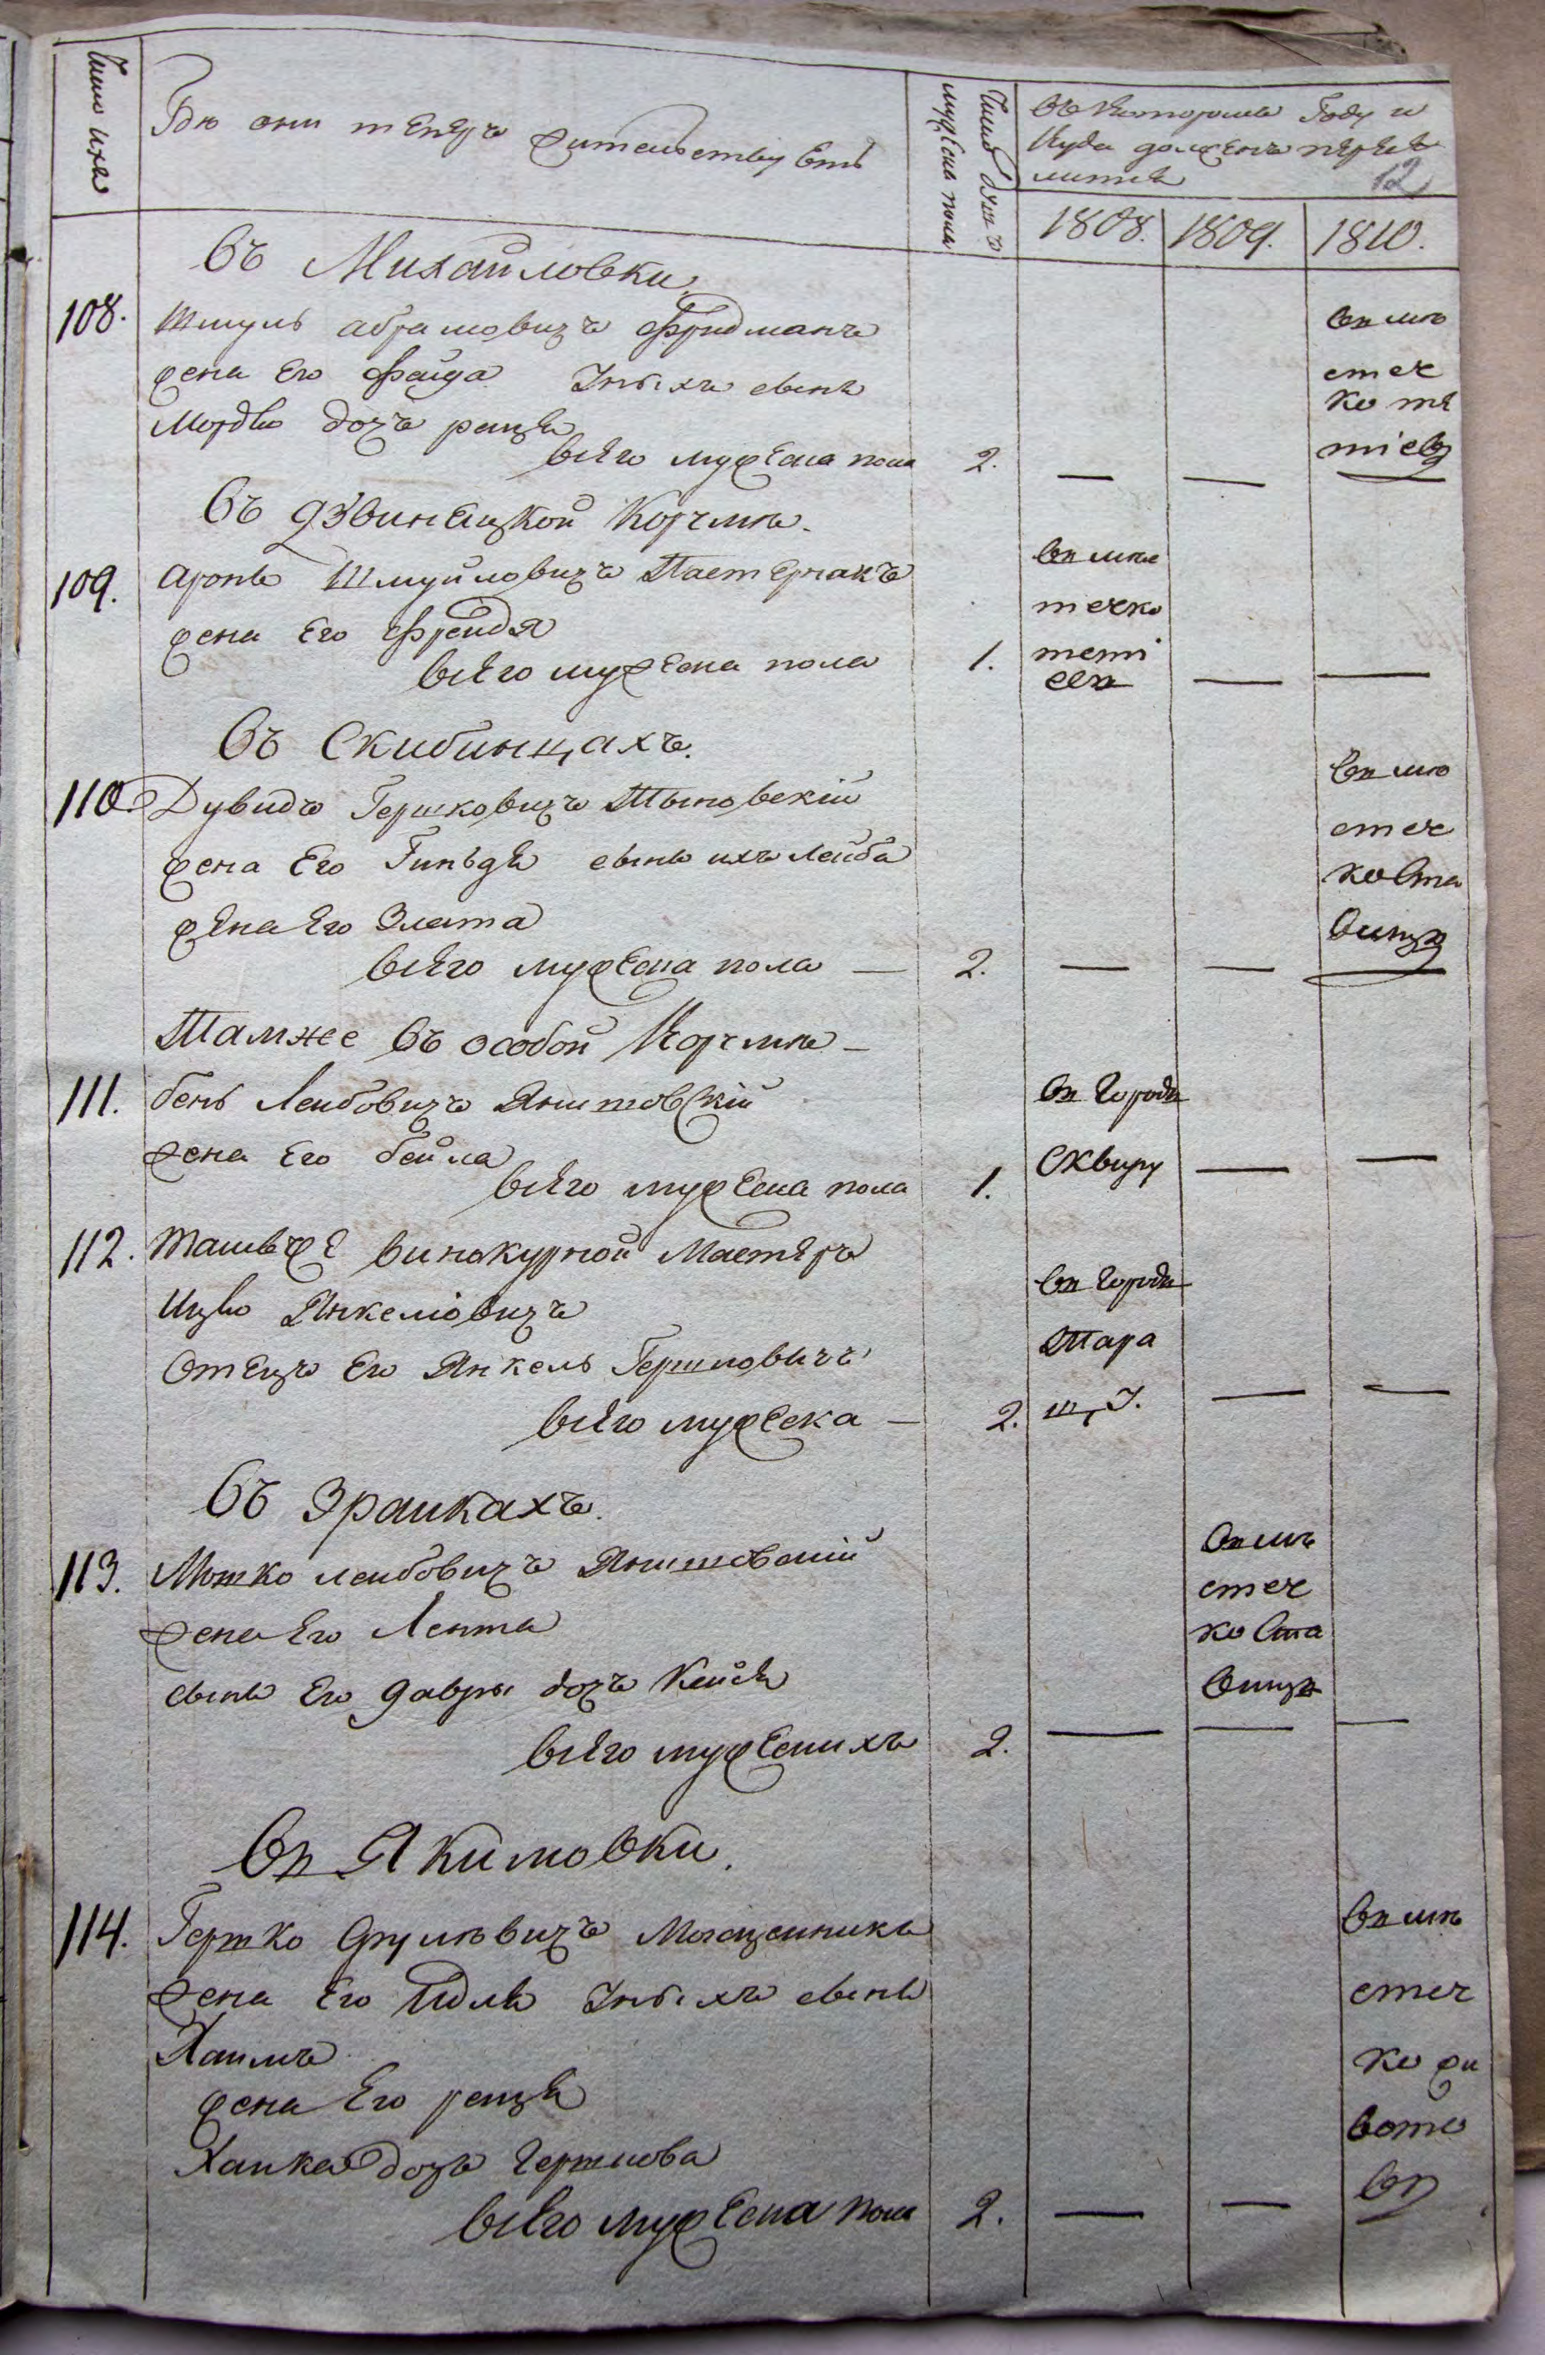 Число ихъ
Где они теперь жительствуютъ
Число душъ
мужеска пола
Въ котором Году и
Куда долженъ пересе
лится
12
1808. 1809. 1810.
Въ Михайловки
108. Шмуль абрамовичъ Фридманъ
жена Его Файга Уныхъ сынъ
Мордко дочъ рейзя
всего мужеска пола 2. — —
вѣ мѣ
стеч
ко те
тіевъ
Въ дзвинецкой Корчмѣ
109. аронъ Шмуйловичъ Пастернакъ
жена Его Фрейдя
всего мужеска пола 1. — —
вѣ мѣс
течко
тети
евѣ
Въ Скибинцахъ.
110. Дувидъ Гершковичъ Тыновскій
жена Его Гиньдя сынъ ихъ Лейба
жена Его Злата
всего мужеска пола — 2. — —
вѣ мѣ
стеч
ко Ста
вищѣ
Тамже въ особой Корчмѣ —
111. бень Лейбовичъ Янштовскій
жена Его бейла
всего мужеска пола 1. — —
вѣ Городѣ
Сквиру
112. Тамъже винокурной Мастеръ
Ицко Янкеліовичъ
Отецъ Его Янкель Гершковичъ
всего мужеска — 2. — —
вѣ Городѣ
Тара
щ, У.
Въ Зрайкахъ.
113. Мошко лейбовичъ Янштовскій
жена Его Лента
сынъ Его дочъ Кейля
всего мужескихъ 2. — —
вѣ мѣ
стеч
ко Ста
вищѣ
Вѣ Якимовки.
114. Гершко Срулѣвичъ
жена Его Идля Уныхъ сынъ
Хаимъ
жена Его рейзя
Хайка дочъ Гершкова
всего мужеска пола 2. — —
вѣ мѣ
стеч
ко жи
вото
вѣ